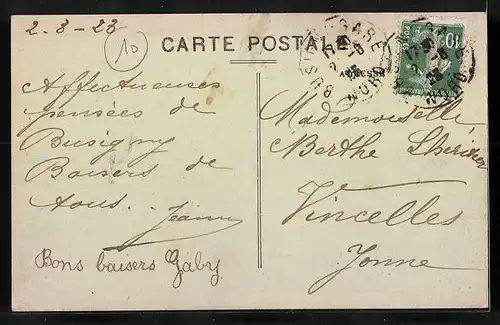 2-8-23
10
CARTE POSTALE
BUSIGNY GARE
NORD
ADRESSE
10
Affectueuses
pensées de
Busigny
Baisers de
tous. Jeanne
Bons baisers Gaby
Mademoiselle
Berthe
Vincelles
Yonne